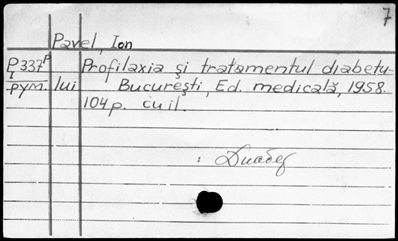 7
Pavel, Ion
P337ᴾ Profilaxia și tratamentul diabetu-
рум. lui București, Ed. medicală, 1958.
104 p. cu il.
: Диабет